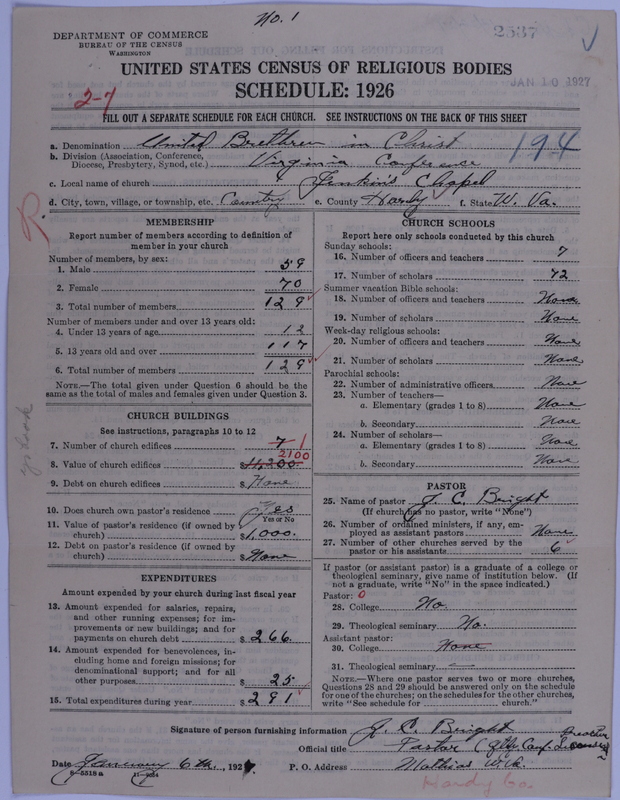 No. 1
DEPARTMENT OF COMMERCE
BUREAU OF THE CENSUS
WASHINGTON
2537
UNITED STATES CENSUS OF RELIGIOUS BODIES
JAN 10 1927
SCHEDULE: 1926
2-7
FILL OUT A SEPARATE SCHEDULE FOR EACH CHURCH. SEE INSTRUCTIONS ON THE BACK OF THIS SHEET
194
a. Denomination United Brethren in Christ
b. Division (Association, Conference, Diocese, Presbytery, Synod, etc.) Virginia Conference
c. Local name of church Jenkins Chapel
d. City, town, village, or township, etc. Country e. County Hardy f. State W. Va.
MEMBERSHIP
Report number of members according to definition of member in your church
Number of members, by sex:
1. Male 59
2. Female 70
3. Total number of members 129
Number of members under and over 13 years old:
4. Under 13 years of age 12
5. 13 years old and over 117
6. Total number of members 129
NOTE.—The total given under Question 6 should be the same as the total of males and females given under Question 3.
CHURCH BUILDINGS
See instructions, paragraphs 10 to 12
7. Number of church edifices 7 1
2100
8. Value of church edifices $11,200.
9. Debt on church edifices $None
10. Does church own pastor's residence Yes
Yes or No
11. Value of pastor's residence (if owned by church) $1,000.
12. Debt on pastor's residence (if owned by church) $None
EXPENDITURES
Amount expended by your church during last fiscal year
13. Amount expended for salaries, repairs, and other running expenses; for improvements or new buildings; and for payments on church debt $266.
14. Amount expended for benevolences, including home and foreign missions; for denominational support; and for all other purposes $25
15. Total expenditures during year $291
CHURCH SCHOOLS
Report here only schools conducted by this church
Sunday schools:
16. Number of officers and teachers 7
17. Number of scholars 72
Summer vacation Bible schools:
18. Number of officers and teachers None
19. Number of scholars None
Week-day religious schools:
20. Number of officers and teachers None
21. Number of scholars None
Parochial schools:
22. Number of administrative officers None
23. Number of teachers—
a. Elementary (grades 1 to 8) None
b. Secondary None
24. Number of scholars—
a. Elementary (grades 1 to 8) None
b. Secondary None
PASTOR
25. Name of pastor J. C. Bright
(If church has no pastor, write "None")
26. Number of ordained ministers, if any, employed as assistant pastors None
27. Number of other churches served by the pastor or his assistants 6
If pastor (or assistant pastor) is a graduate of a college or theological seminary, give name of institution below. (If not a graduate, write "No" in the space indicated.)
Pastor: 0
28. College No.
29. Theological seminary No.
Assistant pastor:
30. College None
31. Theological seminary —
NOTE.—Where one pastor serves two or more churches, Questions 28 and 29 should be answered only on the schedule for one of the churches; on the schedules for the other churches, write "See schedule for church."
Signature of person furnishing information J. C. Bright
Official title Pastor
Date January 6th, 1927 P. O. Address Mathias W. Va.
8-5518a 11-9034
Hardy Co.